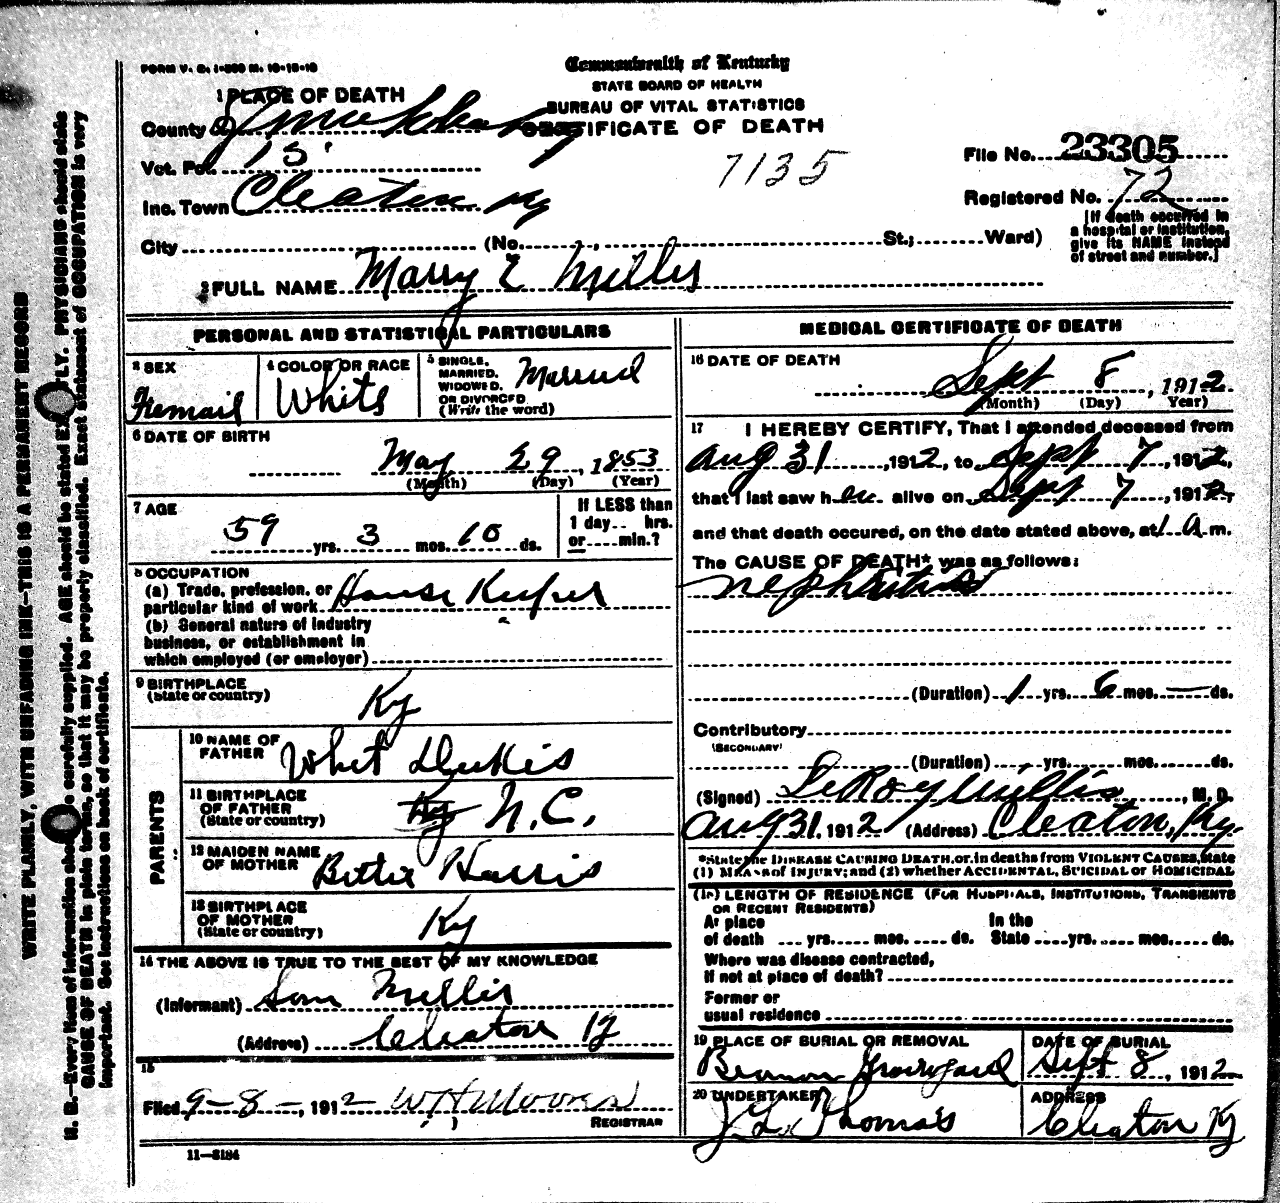 FORM V. S. 1-500 M. 10-18-10
Commonwealth of Kentucky
STATE BOARD OF HEALTH
BUREAU OF VITAL STATISTICS
CERTIFICATE OF DEATH
1 PLACE OF DEATH
County of
Vot. Pct. 15
Inc. Town Cleaton Ky
City (No. , St.; Ward)
7135
File No. 23305
Registered No. 72
[If death occurred in
a hospital or institution,
give its NAME instead
of street and number.]
2 FULL NAME Marry E Millis
PERSONAL AND STATISTICAL PARTICULARS
3 SEX
Fremail
4 COLOR OR RACE
White
5 SINGLE,
MARRIED,
WIDOWED,
OR DIVORCED
(Write the word)
Married
6 DATE OF BIRTH
May 29, 1853
(Month) (Day) (Year)
7 AGE
59 yrs. 3 mos. 10 ds.
If LESS than
1 day.. hrs.
or....min.?
8 OCCUPATION
(a) Trade, profession, or
particular kind of work House Keeper
(b) General nature of industry
business, or establishment in
which employed (or employer)
9 BIRTHPLACE
(State or country)
Ky
PARENTS
10 NAME OF
FATHER
Whit Dukis
11 BIRTHPLACE
OF FATHER
(State or country)
Ky N.C.
12 MAIDEN NAME
OF MOTHER
Bettie Harris
13 BIRTHPLACE
OF MOTHER
(State or country)
Ky
14 THE ABOVE IS TRUE TO THE BEST OF MY KNOWLEDGE
(Informant) Millis
(Address) Cleaton Ky
15
Filed 9-8-, 1912 W H Moores
REGISTRAR
11—8184
MEDICAL CERTIFICATE OF DEATH
16 DATE OF DEATH
Sept 8, 1912
(Month) (Day) Year)
17 I HEREBY CERTIFY, That I attended deceased from
Aug 31, 1912, to Sept 7, 1912,
that I last saw her alive on Sept 7, 1912,
and that death occured, on the date stated above, at 1 a m.
The CAUSE OF DEATH* was as follows:
nephritis
(Duration) 1 yrs. 6 mos. — ds.
Contributory
(SECONDARY)
(Duration) yrs. mos. ds.
(Signed) LeRoy Millis, M. D.
Aug 31. 1912 (Address) Cleaton, Ky.
*State the DISEASE CAUSING DEATH, or, in deaths from VIOLENT CAUSES, state
(1) MEANS of INJURY; and (2) whether ACCIDENTAL, SUICIDAL or HOMICIDAL
(18) LENGTH OF RESIDENCE (FOR HOSPITALS, INSTITUTIONS, TRANSIENTS
OR RECENT RESIDENTS)
At place In the
of death ... yrs. mos. ds. State yrs. mos. ds.
Where was disease contracted,
If not at place of death?
Former or
usual residence
19 PLACE OF BURIAL OR REMOVAL
Graveyard
DATE OF BURIAL
Sept 8, 1912
20 UNDERTAKER
J. L. Thomas
ADDRESS
Cleaton Ky
WRITE PLAINLY, WITH UNFADING INK—THIS IS A PERMANENT RECORD
N. B.—Every item of information should be carefully supplied. AGE should be stated EXACTLY. PHYSICIANS should state
CAUSE OF DEATH in plain terms, so that it may be properly classified. Exact statement of OCCUPATION is very
important. See instructions on back of certificate.